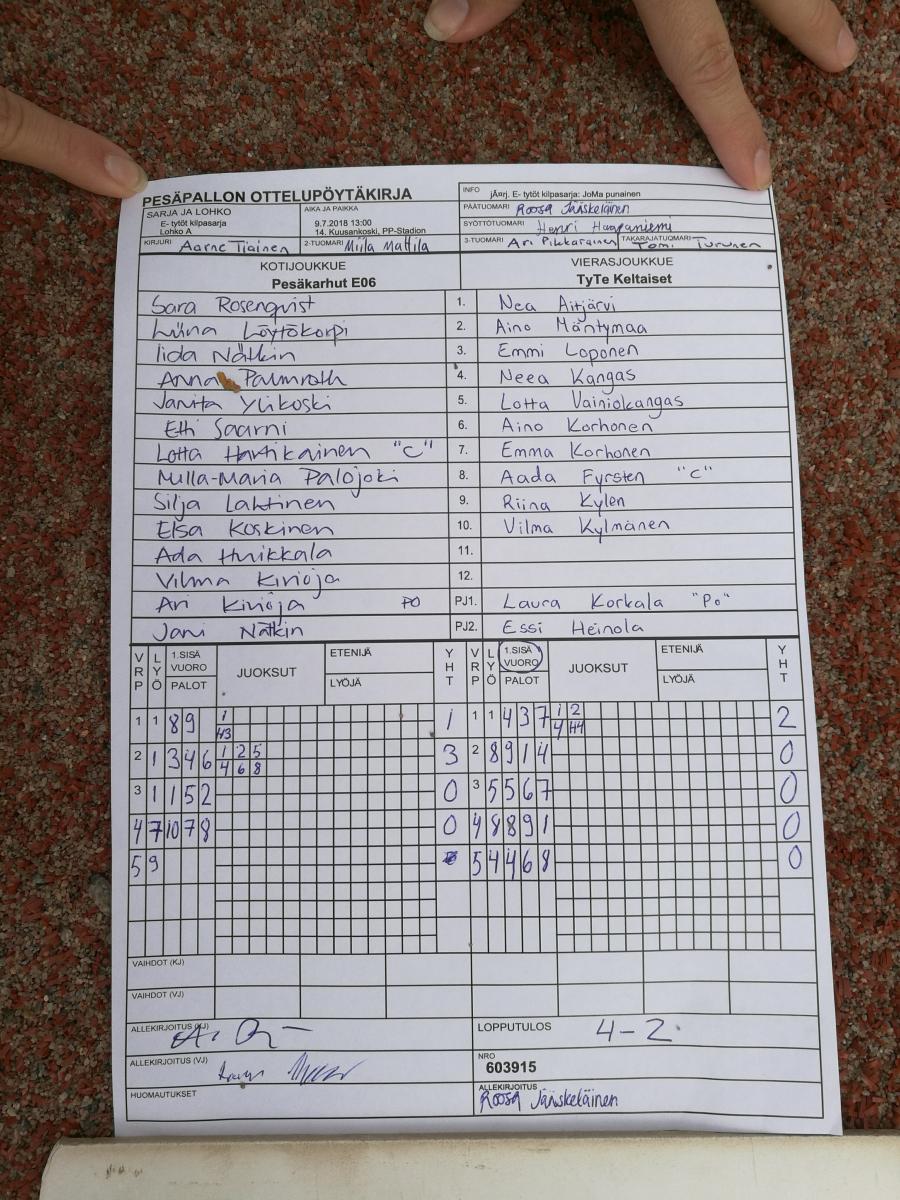 PESÄPALLON OTTELUPÖYTÄKIRJA
INFO jÄrrj. E- tytöt kilpasarja: JoMa punainen
SARJA JA LOHKO
E- tytöt kilpasarja
Lohko A
AIKA JA PAIKKA
9.7.2018 13:00
14. Kuusankoski, PP-Stadion
PÄÄTUOMARI Roosa Jääskeläinen
SYÖTTÖTUOMARI Henri Haapaniemi
KIRJURI Aarne Tiainen 2-TUOMARI Miila Mattila 3-TUOMARI Ari Pikkarainen TAKARAJATUOMARI Tomi Turunen
KOTIJOUKKUE VIERASJOUKKUE
Pesäkarhut E06 TyTe Keltaiset
Sara Rosenqvist 1. Nea Aitjärvi
Liina Löytökorpi 2. Aino Mäntymaa
Iida Nätkin 3. Emmi Loponen
Anna Palmroth 4. Neea Kangas
Janita Ylikoski 5. Lotta Vainiokangas
Etti Saarni 6. Aino Korhonen
Lotta Hartikainen "C" 7. Emma Korhonen
Milla-Maria Palojoki 8. Aada Fyrsten "C"
Silja Lahtinen 9. Riina Kylen
Elsa Koskinen 10. Vilma Kylmänen
Ada Huikkala 11.
Vilma Kirioja 12.
Ari Kirioja PO PJ1. Laura Korkala "Po"
Jani Nätkin PJ2. Essi Heinola
VRP LYÖ 1.SISÄ VUORO PALOT JUOKSUT ETENIJÄ LYÖJÄ YHT VRP LYÖ 1.SISÄ VUORO PALOT JUOKSUT ETENIJÄ LYÖJÄ YHT
1 1 8 9 1 1 1 1 4 3 7 1 2 2
43 4 44
2 1 3 4 6 1 2 5 3 2 8 9 1 4 0
4 6 8
3 1 1 5 2 0 3 5 5 6 7 0
4 7 10 7 8 0 4 8 8 9 1 0
5 9 5 4 4 6 8 0
VAIHDOT (KJ)
VAIHDOT (VJ)
ALLEKIRJOITUS (KJ) LOPPUTULOS 4-2
ALLEKIRJOITUS (VJ) NRO
603915
HUOMAUTUKSET ALLEKIRJOITUS
Roosa Jääskeläinen